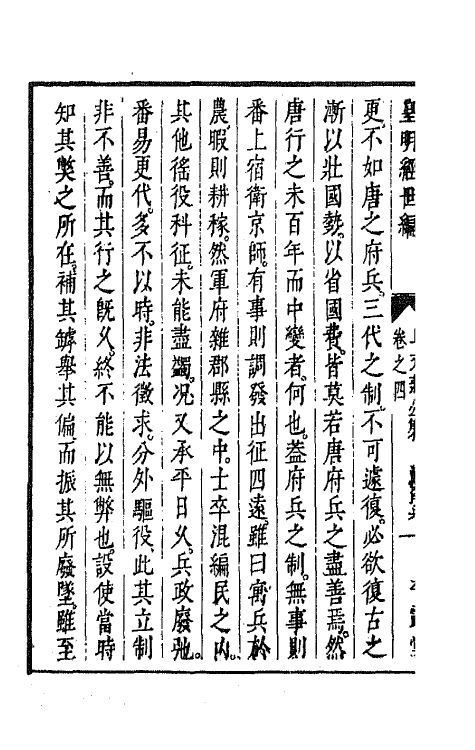 皇明經世編
卷之四
更不如唐之府兵。三代之制。不可遽復。必欲復古之
漸以壯國勢。以省國費。皆莫若唐府兵之盡善焉。然
唐行之未百年而中變者。何也。蓋府兵之制。無事則
番上宿衛京師。有事則調發出征四遠。雖曰寓兵於
農。暇則耕稼。然軍府雜郡縣之中。士卒混編民之内。
其他徭役科征。未能盡蠲。况又承平日久。兵政廢弛。
番易更代。多不以時。非法徵求。分外驅役。此其立制
非不善。而其行之旣久。終不能以無弊也。設使當時
知其獘之所在。補其罅舉其偏。而振其所廢墜。雖至